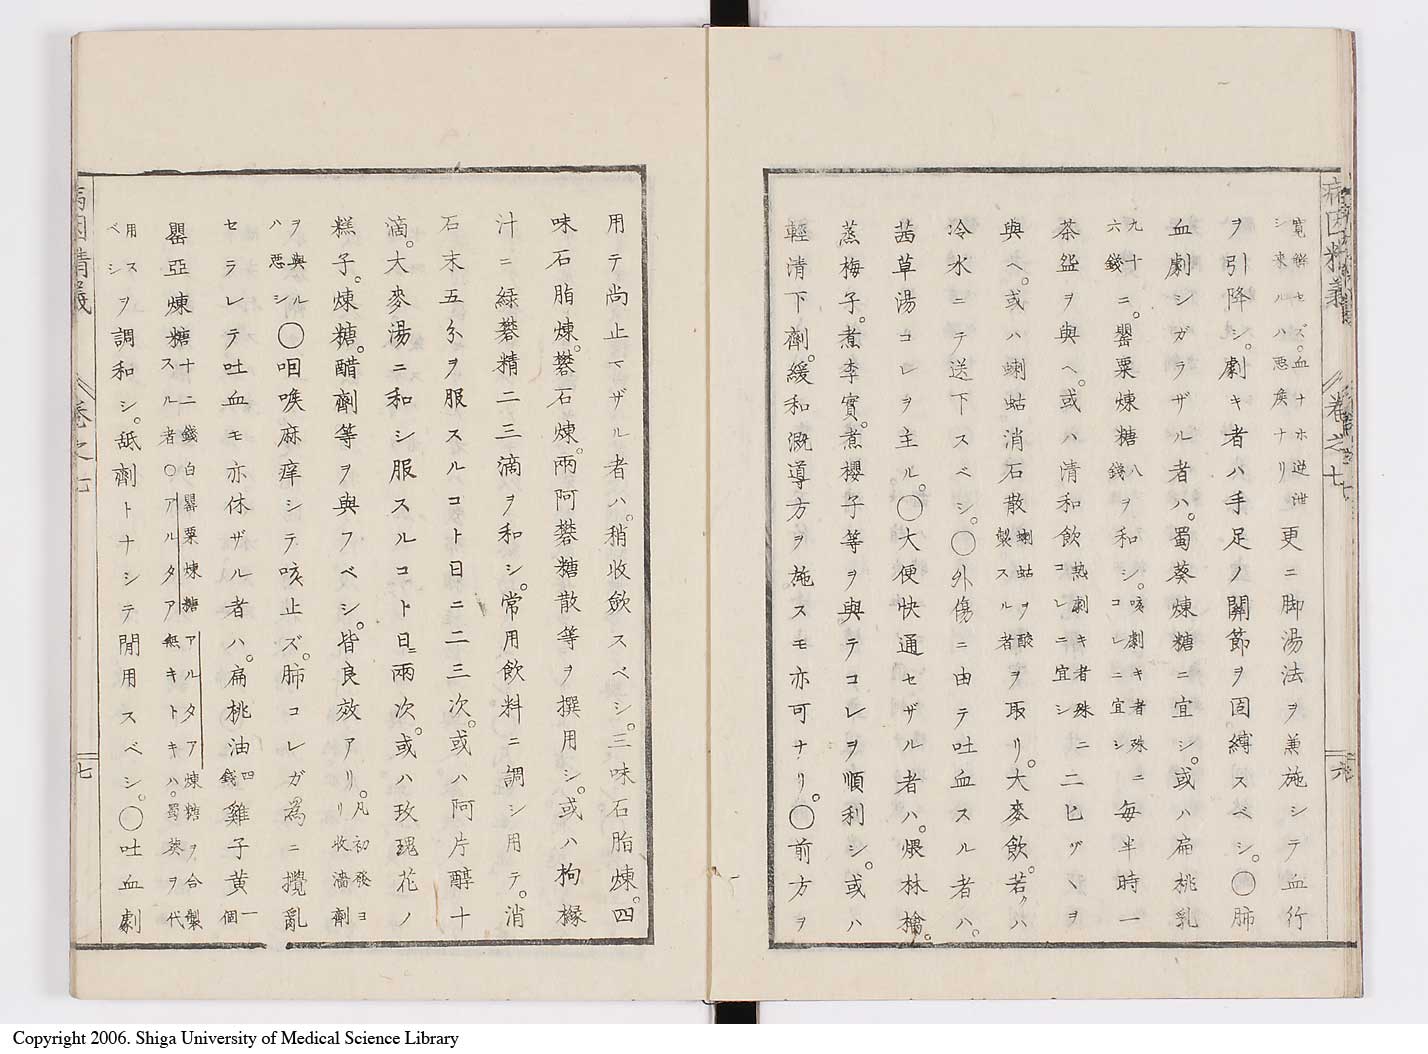 病因精義
卷之七
六
寛解セズ。血ナホ逆泄シ來ルハ悪疾ナリ更ニ脚湯法ヲ兼施シテ血行
ヲ引降シ。劇キ者ハ手足ノ關節ヲ固縛スベシ。〇肺
血劇シガラザル者ハ。蜀葵煉糖ニ宜シ。或ハ扁桃乳
九十六錢ニ。罌粟煉糖八錢ヲ和シ。咳劇キ者殊ニコレニ宜シ毎半時一
茶盌ヲ與ヘ。或ハ清和飲熱劇キ者殊ニコレニ宜シ二匕ヅヽヲ
與ヘ。或ハ蝲蛄消石散蝲蛄ヲ酸製スル者ヲ取リ。大麥飲。若クハ
冷水ニテ送下スベシ。〇外傷ニ由テ吐血スル者ハ。
茜草湯コレヲ主ル。〇大便快通セザル者ハ。煨林檎。
蒸梅子。煮李實。煮櫻子等ヲ與テコレヲ順利シ。或ハ
輕清下劑。緩和漑導方ヲ施スモ亦可ナリ。〇前方ヲ
用テ尚止マザル者ハ。稍收斂スベシ。三味石脂煉。四
味石脂煉。礬石煉。兩阿礬糖散等ヲ撰用シ。或ハ枸櫞
汁ニ緑礬精二三滴ヲ和シ。常用飲料ニ調シ用テ。消
石末五分ヲ服スルコト日ニ二三次。或ハ阿片醇十
滴。大麥湯ニ和シ服スルコト日ニ兩次。或ハ玫瑰花ノ
糕子。煉糖。醋劑等ヲ與フベシ。皆良效アリ。凡初發ヨリ收濇劑
ヲ與ルハ悪シ〇咽喉麻痒シテ咳止ズ。肺コレガ爲ニ攪亂
セラレテ吐血モ亦休ザル者ハ。扁桃油四錢雞子黄一個
罌亞煉糖十二錢白罌粟煉糖アルタア煉糖ヲ合製スル者〇アルタア無キトキハ。蜀葵ヲ代
用スベシヲ調和シ。舐劑トナシテ閒用スベシ。〇吐血劇
病因精義
卷之七
七
Copyright 2006. Shiga University of Medical Science Library